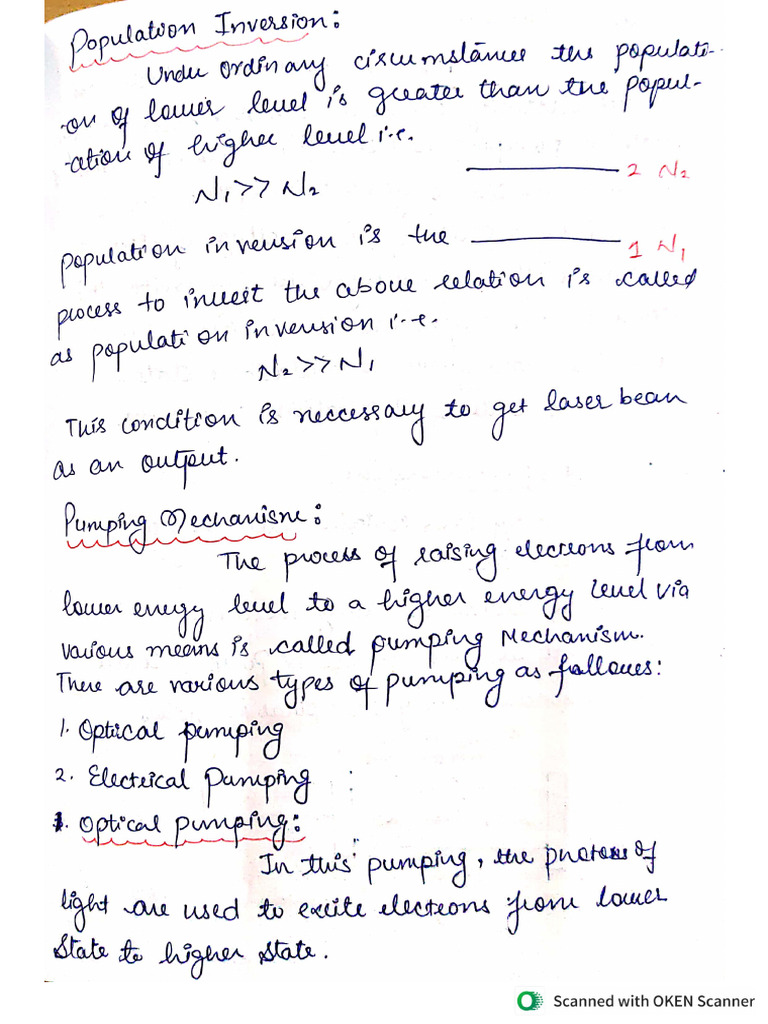 Population Inversion:
Under ordinary circumstance the populati-
-on of lower level is greater than the popul-
-ation of higher level i.e.
N₁>>N₂
2 N₂
Population inversion is the
1 N₁
process to invert the above relation is called
as population inversion i.e.
N₂>>N₁
This condition is neccessary to get laser bean
as an output.
Pumping Mechanism:
The process of raising electrons from
lower energy level to a higher energy level via
various means is called pumping Mechanism.
There are various types of pumping as follows:
1. Optical pumping
2. Electrical Pumping
1. Optical pumping:
In this pumping, the photons of
light are used to excite electrons from lower
State to higher State.
Scanned with OKEN Scanner